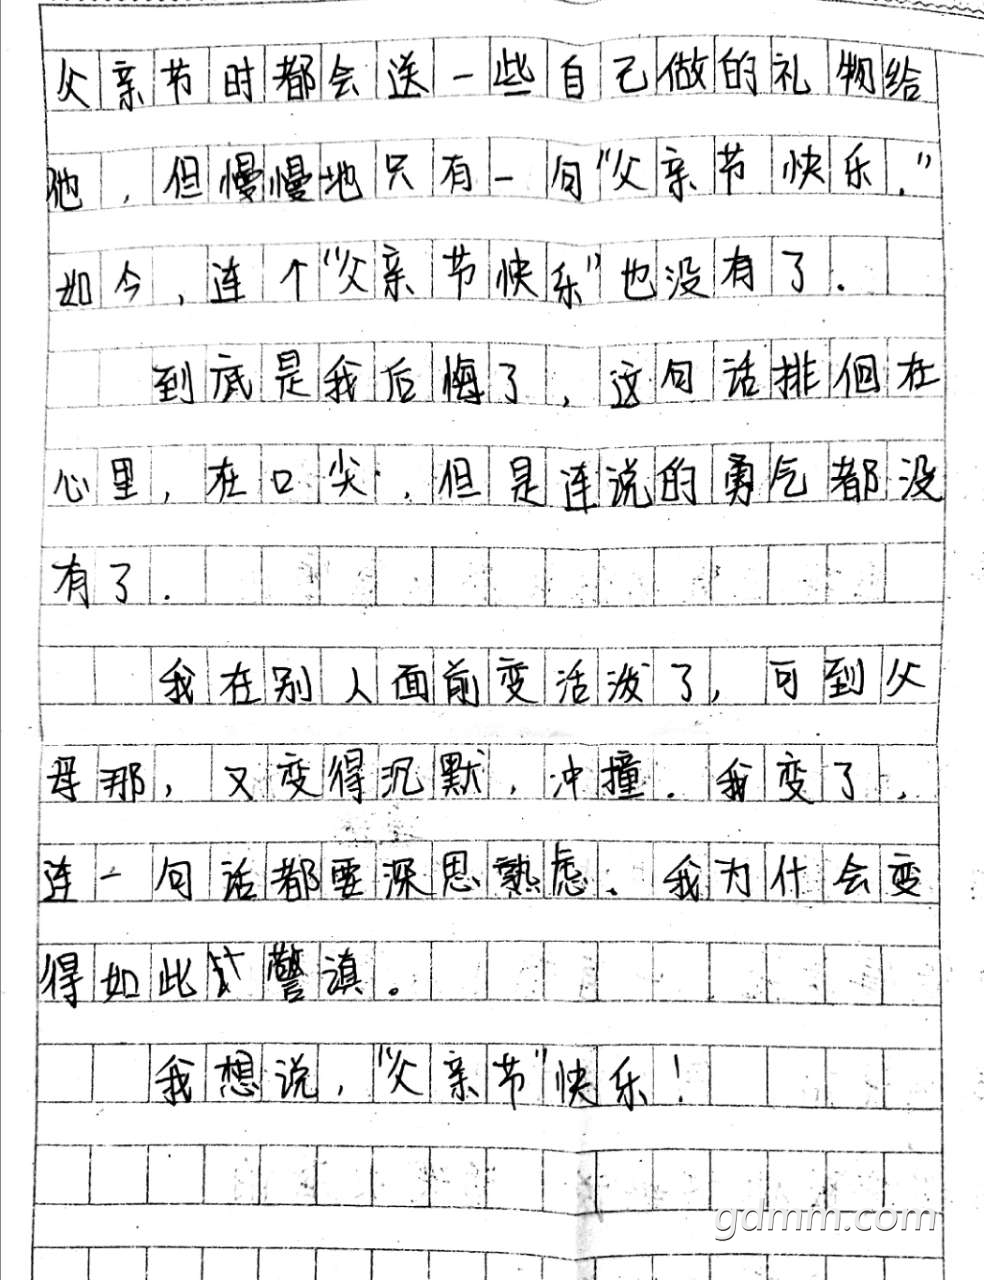 父亲节时都会送一些自己做的礼物给
他，但慢慢地只有一句“父亲节快乐.”
如今，连个“父亲节快乐”也没有了.
到底是我后悔了，这句话排徊在
心里，在口尖，但是连说的勇气都没
有了.
我在别人面前变活泼了，可到父
母那，又变得沉默，冲撞.我变了，
连一句话都要深思熟虑.我为什会变
得如此警滇。
我想说，“父亲节”快乐！
gdmm.com